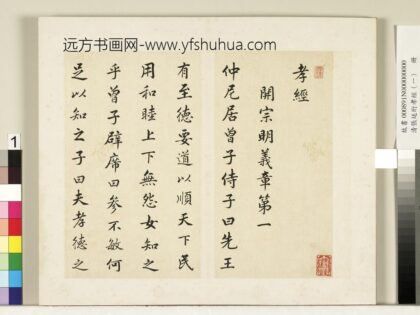 远方书画网-www.yfshuhua.com
孝經
開宗明義章第一
仲尼居曾子侍子曰先王
有至德要道以順天下民
用和睦上下無怨女知之
乎曾子辟席曰參不敏何
足以知之子曰夫孝德之
1